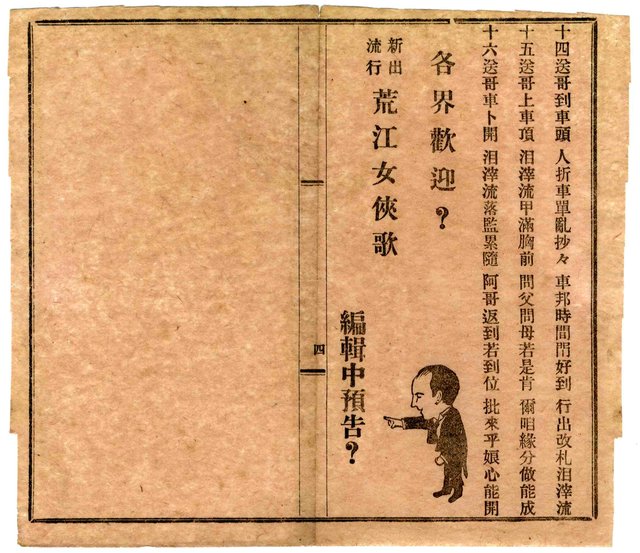 十四送哥到車頭 人折車單亂抄々 車邦時間閙好到 行出改札泪滓流
十五送哥上車頂 泪滓流甲滿胸前 問父問母若是肯 爾咱緣分做能成
十六送哥車卜開 泪滓流落監累隨 阿哥返到若到位 批來乎娘心能開
各界歡迎？
新出
流行
荒江女俠歌
編輯中預告？
四